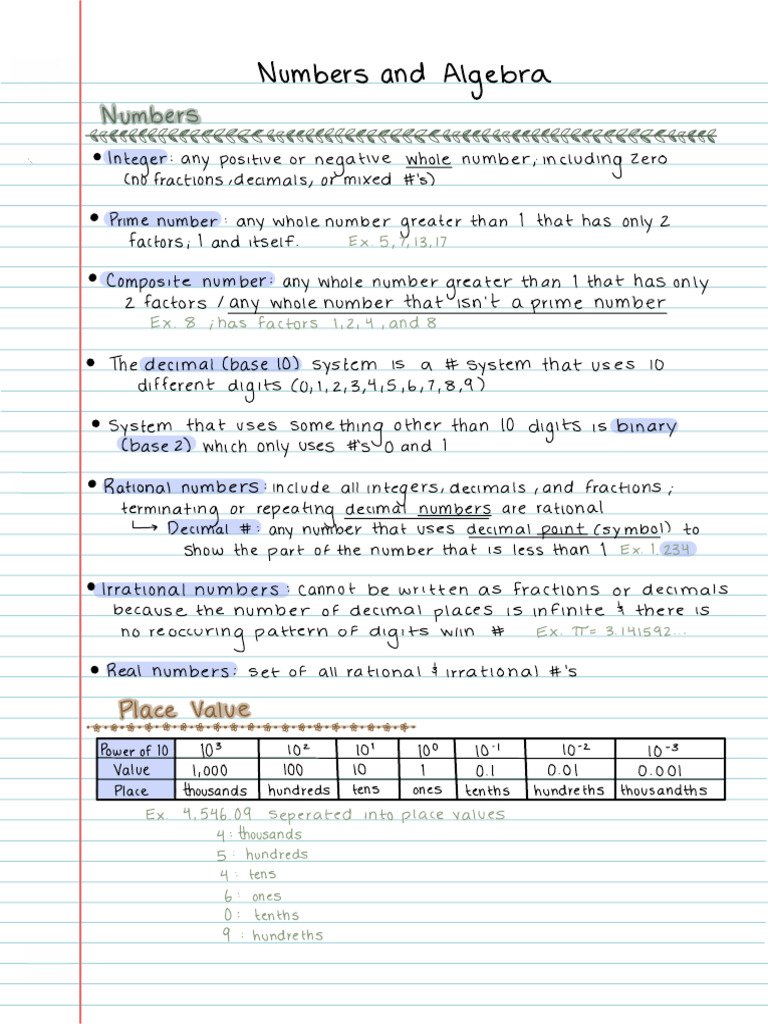 Numbers and Algebra
Numbers
• Integer: any positive or negative whole number, including zero
(no fractions, decimals, or mixed #'s)
• Prime number: any whole number greater than 1 that has only 2
factors; 1 and itself. Ex. 5, 7, 13, 17
• Composite number: any whole number greater than 1 that has only
2 factors / any whole number that isn't a prime number
Ex. 8 ; has factors 1, 2, 4, and 8
• The decimal (base 10) system is a # system that uses 10
different digits (0,1,2,3,4,5,6,7,8,9)
• System that uses something other than 10 digits is binary
(base 2) which only uses #'s 0 and 1
• Rational numbers: include all integers, decimals, and fractions;
terminating or repeating decimal numbers are rational
↳ Decimal #: any number that uses decimal point (symbol) to
show the part of the number that is less than 1 Ex. 1.234
• Irrational numbers: cannot be written as fractions or decimals
because the number of decimal places is infinite & there is
no reoccuring pattern of digits w/in # Ex. π = 3.141592...
• Real numbers: set of all rational & irrational #'s
Place Value
Power of 10 10³ 10² 10¹ 10⁰ 10⁻¹ 10⁻² 10⁻³
Value 1,000 100 10 1 0.1 0.01 0.001
Place thousands hundreds tens ones tenths hundreths thousandths
Ex. 4,546.09 seperated into place values
4: thousands
5: hundreds
4: tens
6: ones
0: tenths
9: hundreths